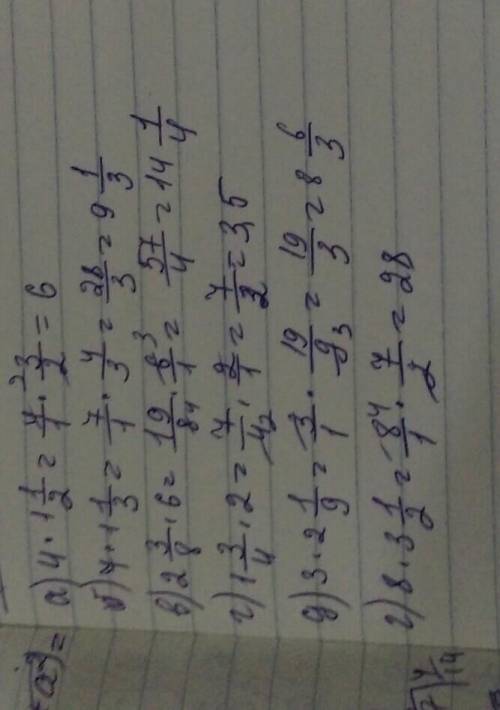 а) 4 · 1 1/2 = 4/1 · 3/2 = 6
б) 7 · 1 1/3 = 7/1 · 4/3 = 28/3 = 9 1/3
в) 2 3/8 · 6 = 19/8 4 · 6/1 3 = 57/4 = 14 1/4
г) 1 3/4 · 2 = 7/4 2 · 2/1 = 7/2 = 3,5
д) 3 · 2 1/9 = 3/1 · 19/9 3 = 19/3 = 8 6/3
г) 8 · 3 1/2 = 8/1 4 · 7/2 = 28